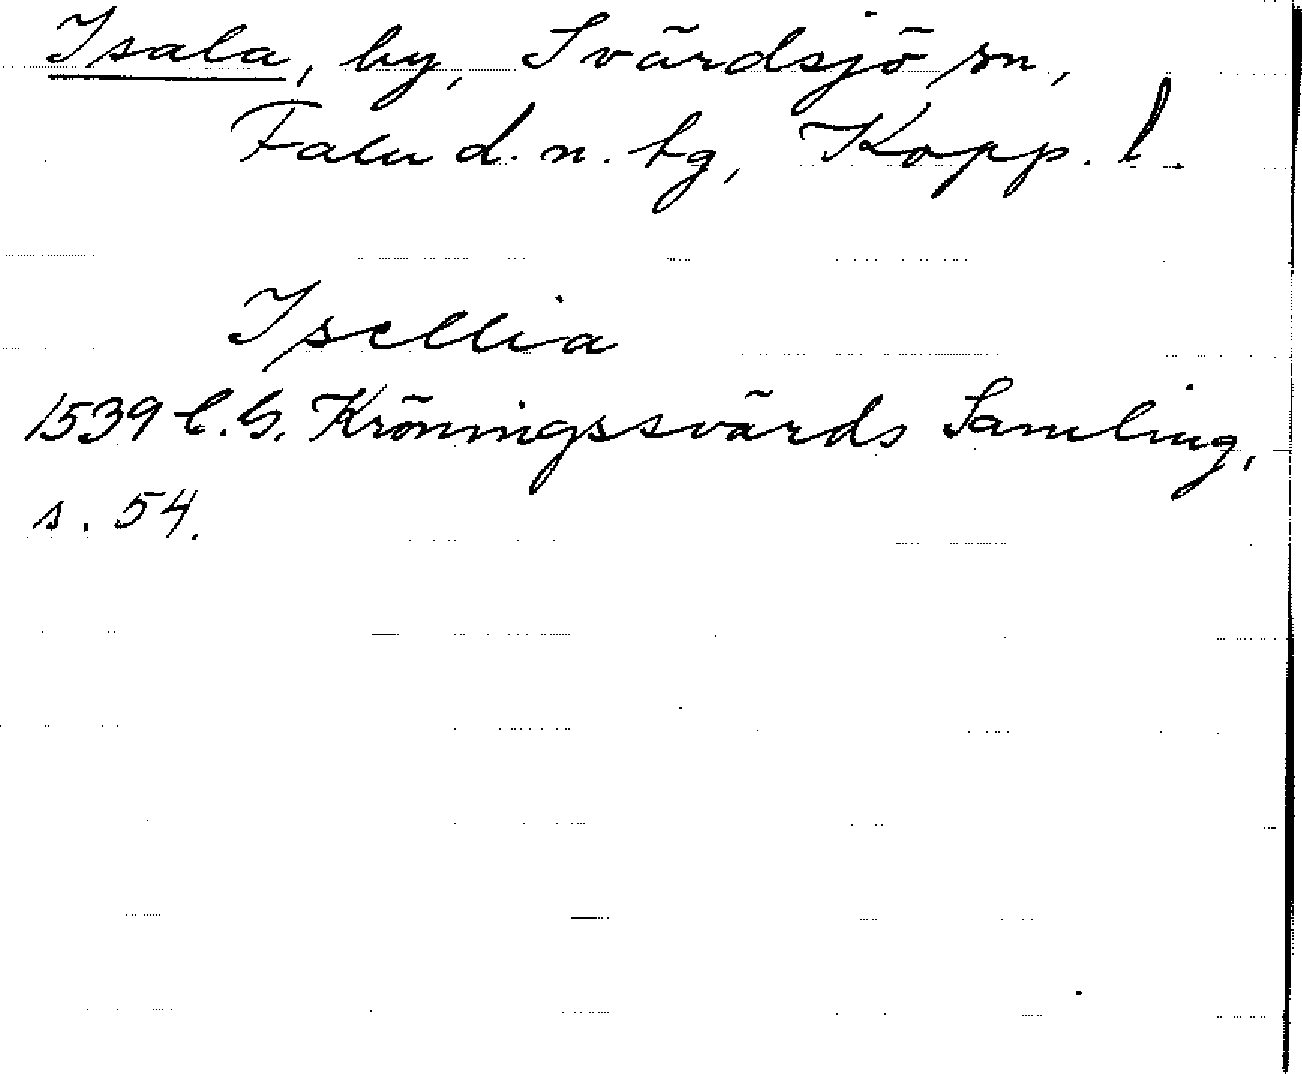 Isala, by, Svärdsjö sn,
Falu d. n. tg, Kopp. l.
Isellia
1539 C. G. Kröningssvärds Samling,
s. 54.